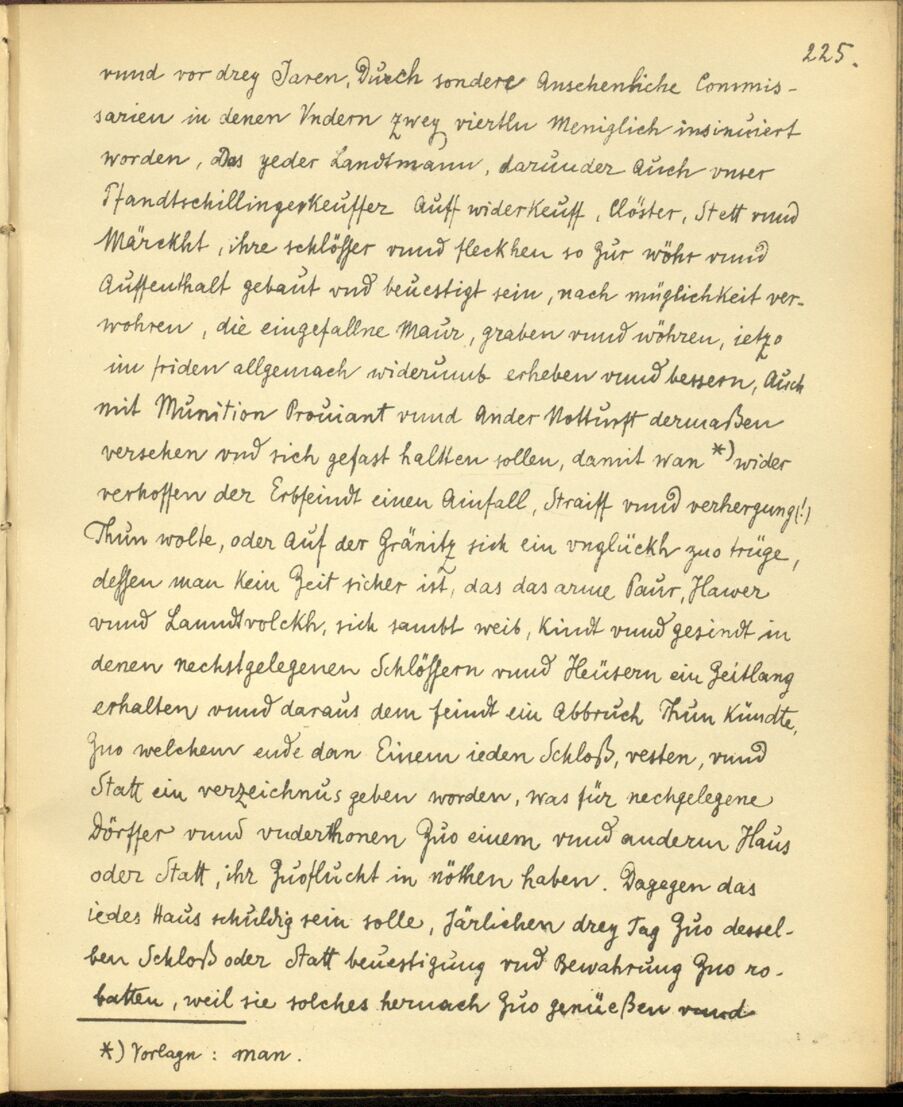 225.
vnnd vor drey Jaren, Durch sondere Ansehenliche Commis-
sarien in denen Vndern zwey viertln Meniglich insinuiert
worden, Das yeder Landtmann, darunder Auch vnser
Pfandtschillingerkeuffer Auff widerkeuff, Clöster, Stett vnnd
Märckht, ihre schlösser vnnd fleckhen so Zur wöhr vnnd
Auffenthalt gebaut vnd beuestigt sein, nach müglichkeit ver-
wohren, die eingefallne Maur, graben vnnd wöhren, ietzo
im friden allgemach widerumb erheben vnnd bessern, Auch
mit Munition Prouiant vnnd Ander Notturft dermaßen
versehen vnd sich gefast haltten sollen, damit wan *) wider
verhoffen der Erbfeindt einen Ainfall, Straiff vnnd verhergung(!)
Thun wolte, oder Auf der Gränitz sich ein vnglückh zuo trüge,
dessen man Kein Zeit sicher ist, das das arme Paur, Hawer
vnnd Lanndtvolckh, sich sambt weib, Kindt vnnd gesindt in
denen nechstgelegenen Schlössern vnnd Heüsern ein Zeitlang
erhalten vnnd daraus dem feindt ein Abbruch Thun Kündte,
Zuo welchem ende dan Einem ieden Schloß, vesten, vnnd
Statt ein verzeichnus geben worden, was für nechgelegene
Dörffer vnnd vnderthonen Zuo einem vnnd anderm Haus
oder Statt, ihr Zuoflucht in nöthen haben. Dagegen das
iedes Haus schuldig sein solle, Järlichen drey Tag Zuo dessel-
ben Schloß oder Statt beuestigung vnd Bewahrung Zuo ro-
batten, weil sie solches hernach Zuo genüeßen vnnd
*) Vorlage : man.